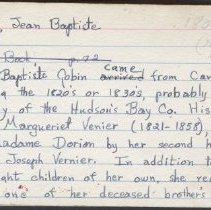 , Jean Baptiste
Back p. 22
came
Baptiste Gobin arrived from Can
the 1820's or 1830's, probably
y of the Hudson's Bay Co. His
Margueriet Venier (1821-1858)
adame Dorion by her second h
Joseph Vernier. In addition t
ght children of her own, she re
one of her deceased brother's